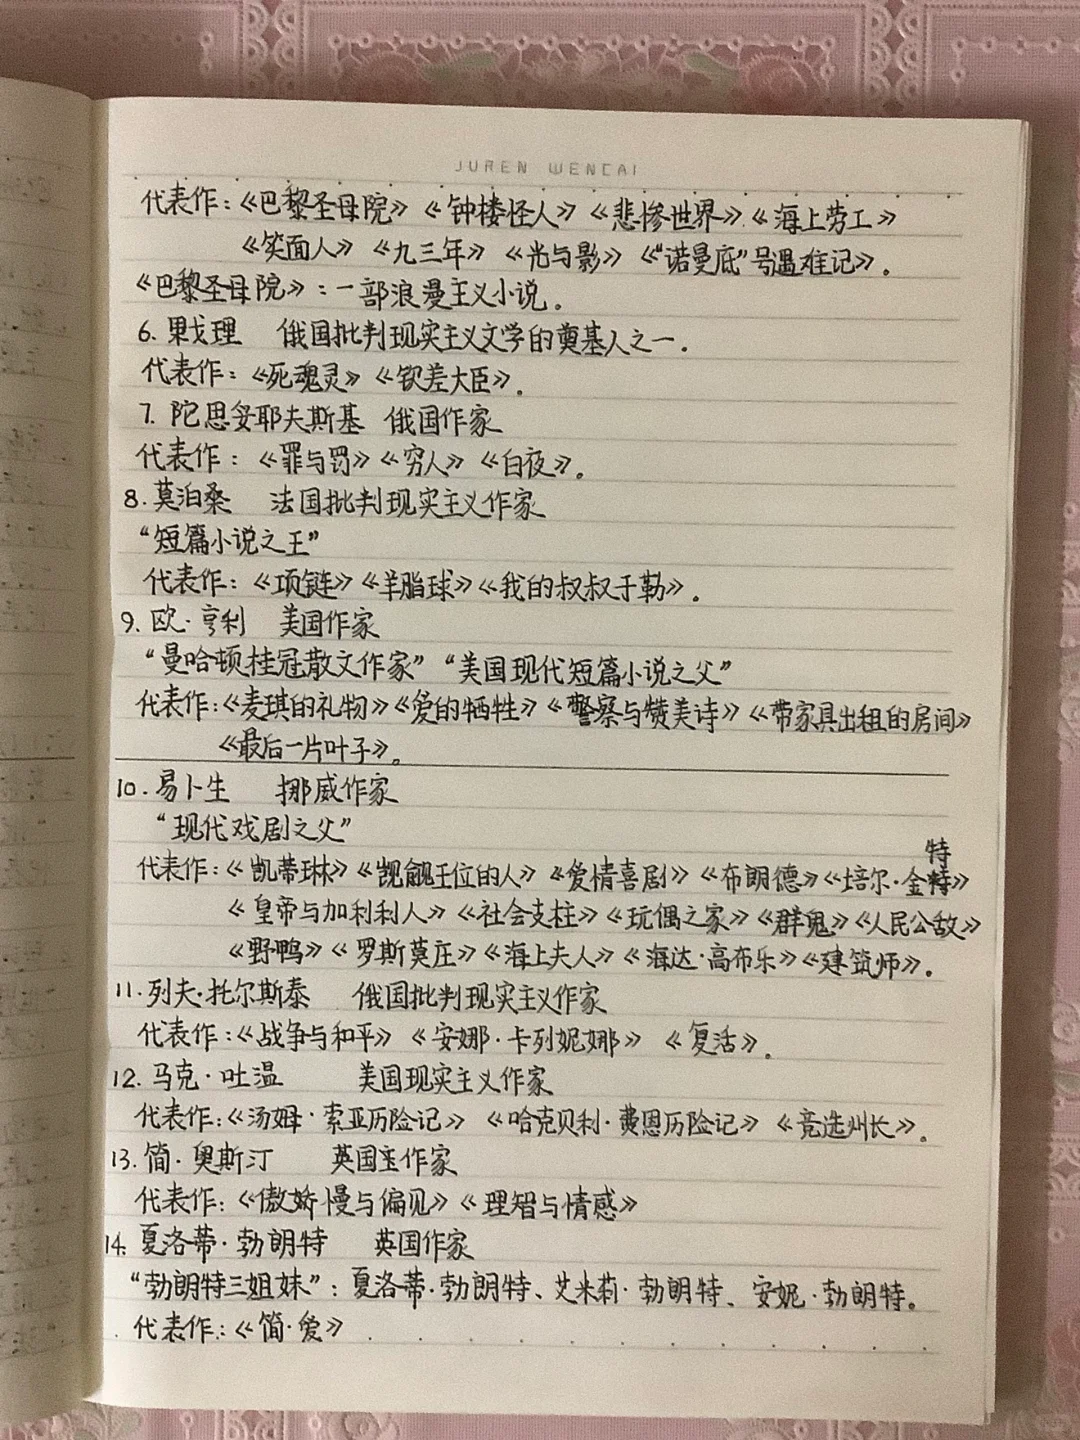 JUREN WENCAI
代表作：《巴黎圣母院》《钟楼怪人》《悲惨世界》《海上劳工》
《笑面人》《九三年》《光与影》《“诺曼底”号遇难记》.
《巴黎圣母院》：一部浪漫主义小说.
6. 果戈理 俄国批判现实主义文学的奠基人之一.
代表作：《死魂灵》《钦差大臣》.
7. 陀思妥耶夫斯基 俄国作家
代表作：《罪与罚》《穷人》《白夜》.
8. 莫泊桑 法国批判现实主义作家
“短篇小说之王”
代表作：《项链》《羊脂球》《我的叔叔于勒》.
9. 欧·亨利 美国作家
“曼哈顿桂冠散文作家”“美国现代短篇小说之父”
代表作：《麦琪的礼物》《爱的牺牲》《警察与赞美诗》《带家具出租的房间》
《最后一片叶子》.
10. 易卜生 挪威作家
“现代戏剧之父”
代表作：《凯蒂琳》《觊觎王位的人》《爱情喜剧》《布朗德》《培尔·金特》
《皇帝与加利利人》《社会支柱》《玩偶之家》《群鬼》《人民公敌》
《野鸭》《罗斯莫庄》《海上夫人》《海达·高布乐》《建筑师》.
11. 列夫·托尔斯泰 俄国批判现实主义作家
代表作：《战争与和平》《安娜·卡列妮娜》《复活》.
12. 马克·吐温 美国现实主义作家
代表作：《汤姆·索亚历险记》《哈克贝利·费恩历险记》《竞选州长》.
13. 简·奥斯汀 英国作家
代表作：《傲慢与偏见》《理智与情感》
14. 夏洛蒂·勃朗特 英国作家
“勃朗特三姐妹”：夏洛蒂·勃朗特、艾米莉·勃朗特、安妮·勃朗特。
代表作：《简·爱》